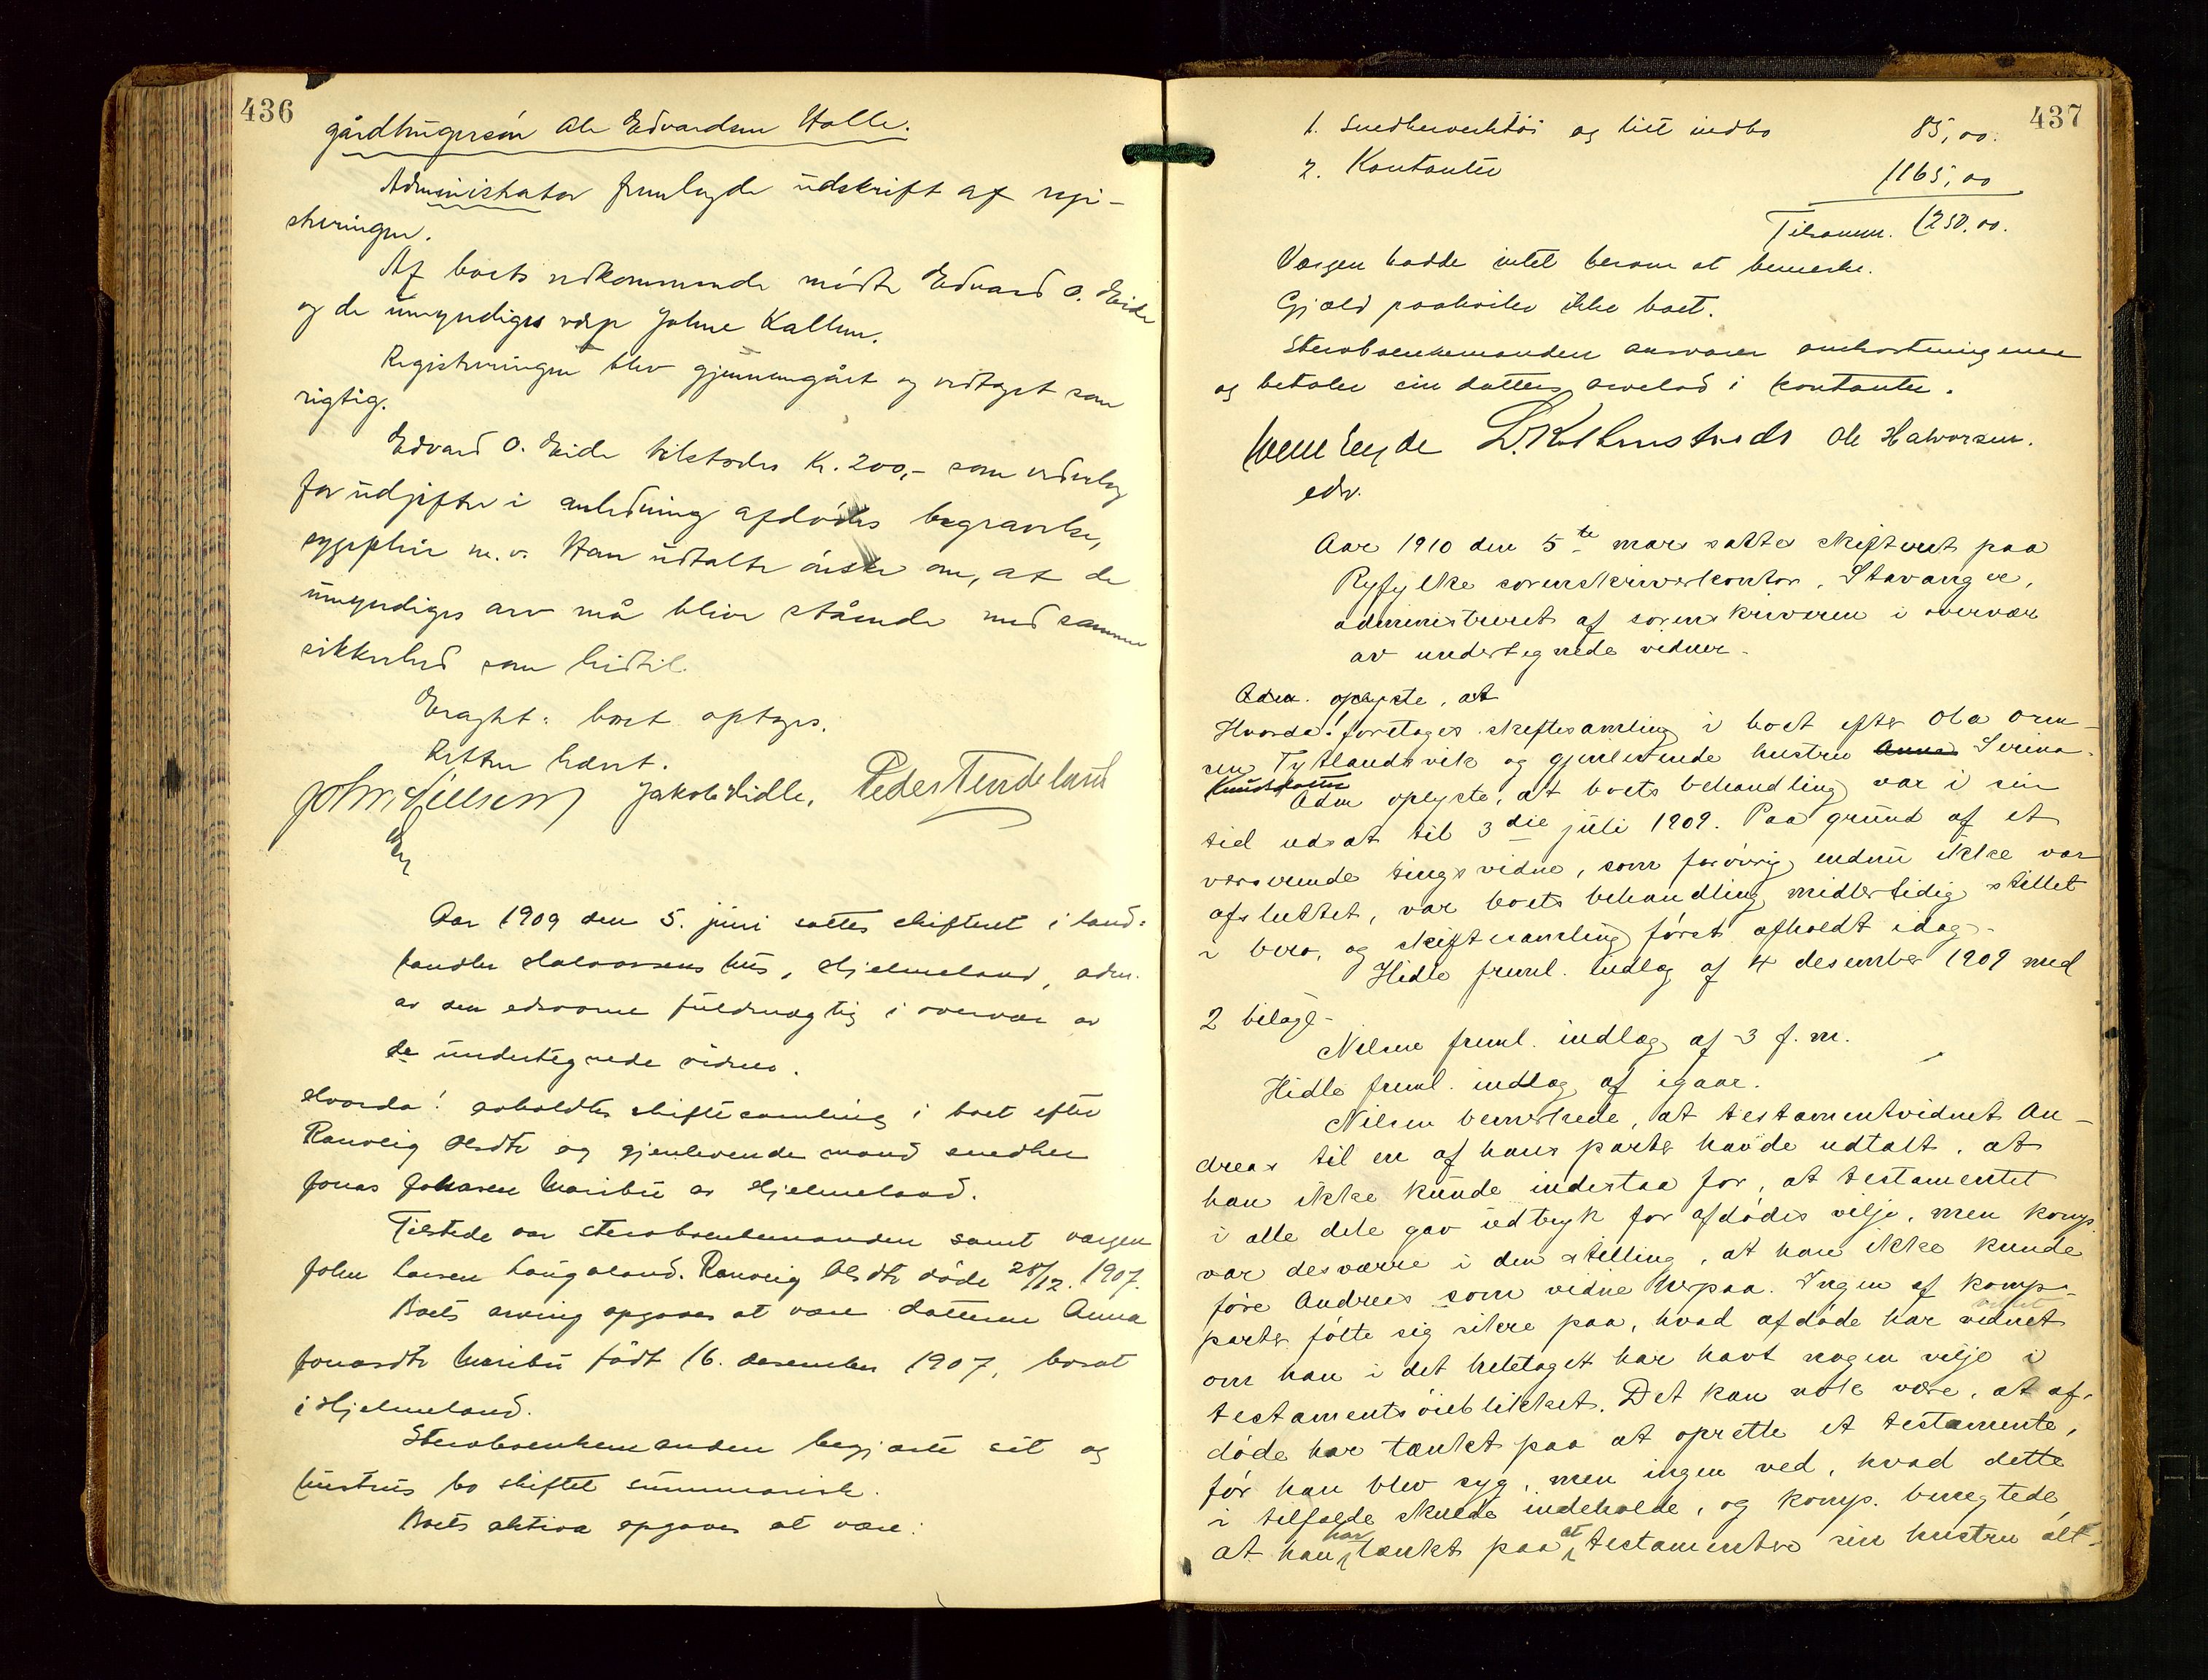 436
gårdbrugersøn Ole Edvardsen Halle.
Administrator fremlagde udskrift af regi-
streringen.
Af boets vedkommende mødte Edvard O. Eide
og de umyndiges værge Johne Kallem.
Registreringen blev gjennemgået og vedtaget som
rigtig.
Edvard O. Eide tilstodes Kr. 200,- som vederlag
for udgifter i anledning afdødes begravelse,
sygepleie m.v. Han udtalte ønske om, at de
umyndiges arv må blive stående med samme
sikkerhed som hidtil.
Eragtet: boet optages.
Retten hævet.
John Nilsen Jakob Hidle, Peder Tendeland
Aar 1909 den 5. juni sattes skifteret i land-
handler Halvorsens hus, Hjelmeland, adm.
av den edsvorne fuldmægtig i overvær av
de undertegnede vidner.
Hvorda! avholdtes skiftesamling i boet efter
Ranveig Olsdtr og gjenlevende mand snedker
Jonas Johasen Maribu av Hjelmeland.
Tilstede var stervboenkemanden samt vergen
John Larsen Laugaland. Ranveig Olsdtr døde 28/12. 1907.
Boets arving opgaves at være datteren Anna
Jonasdtr Maribu født 16. desember 1907, bosat
i Hjelmeland.
Stervboenkemanden begjærte sit og
hustrus bo skiftet summarisk.
Boets aktiva opgaves at være:
437
1. Snedkerverktøi og litt indbo 85,00.
2. Kontanter 1165,00
Tilsamm. 1250.00.
Vergen hadde intet herom at bemerke.
Gjæld paahviler ikke boet.
Stervboenkemanden ansvarer omkostningerne
og betaler sin datters arvelod i kontanter.
Ole Halvorsen.
edv.
Aar 1910 den 5te mars sattes skifteret paa
Ryfylke sorenskriverkontor, Stavanger,
administreret af sorenskriveren i overvær
av undertegnede vidner.
Adm. oplyste, at
Hvorda! foretages skiftesamling i boet efter Ola Orm-
sen Tytlandsvik og gjenlevende hustru Anna Serina
Knudsdatter
Adm oplyste, at boets behandling var i sin
tid udsat til 3die juli 1909. Paa grund af et
værserende tingsvidne, som forøvrig endnu ikke var
afsluttet, var boets behandling midlertidig stillet
i bero, og skiftesamling først afholdt idag.
Hidle freml. indlæg af 4 desember 1909 med
2 bilage-
Nilsen freml. indlæg af 3 f. m.
Hidle freml. indlæg af igaar.
Nilsen bemerkede, at testamentvidnet An-
dreas til en af hans parter havde udtalt, at
han ikke kunde indestaa for, at testamentet
i alle dele gav udtryk for afdødes vilje, men komp.
var desværre i den stilling, at han ikke kunde
føre Andreas som vidne herpaa. Ingen af komp-
parter følte sig sikre paa, hvad afdøde har vidnet
villet
om han i det heletaget har havt nogen vilje i
testamentsøieblikket. Det kan nok være, at af-
døde har tænkt paa at oprette et testamente,
før han blev syg, men ingen ved, hvad dette
i tilfælde skulde indeholde, og komp. benegtede
at han har tænkt paa at testamentere sin hustru alt-